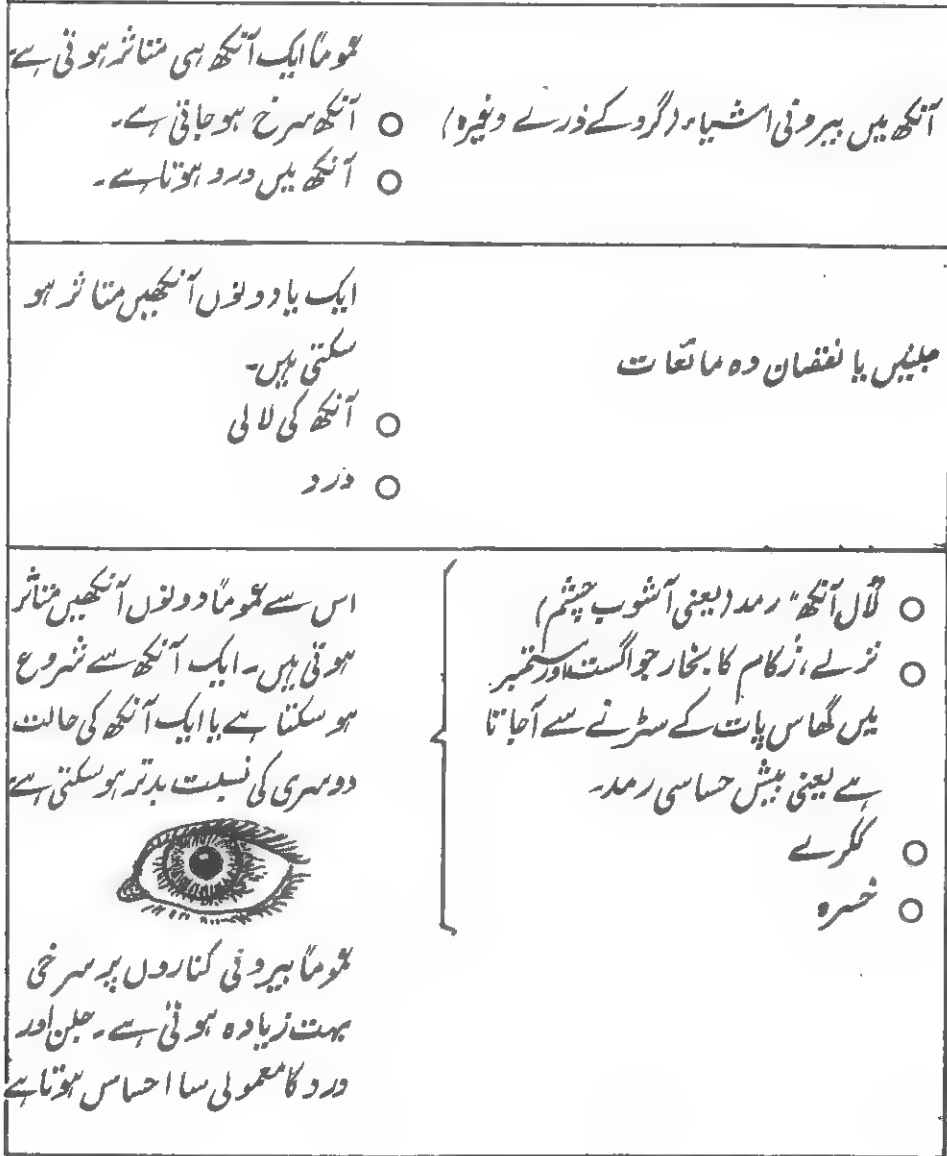 آنکھ میں بیرونی اشیاء (گرد کے ذرے وغیرہ)
عموماً ایک آنکھ ہی متاثر ہوتی ہے
○ آنکھ سرخ ہو جاتی ہے۔
○ آنکھ میں درد ہوتا ہے۔
جلنیں یا نقصان دہ مائعات
ایک یا دونوں آنکھیں متاثر ہو
سکتی ہیں۔
○ آنکھ کی لالی
○ درد
○ "لال آنکھ" رمد (یعنی آشوب چشم)
○ نزلے، زکام کا بخار جو اگست اور ستمبر
میں گھاس پات کے سڑنے سے آجاتا
ہے یعنی بیش حساسی رمد۔
○ ککرے
○ خسرہ
اس سے عموماً دونوں آنکھیں متاثر
ہوتی ہیں۔ ایک آنکھ سے شروع
ہو سکتا ہے یا ایک آنکھ کی حالت
دوسری کی نسبت بدتر ہو سکتی ہے
عموماً بیرونی کناروں پر سرخی
بہت زیادہ ہوتی ہے۔ جلن اور
درد کا معمولی سا احساس ہوتا ہے